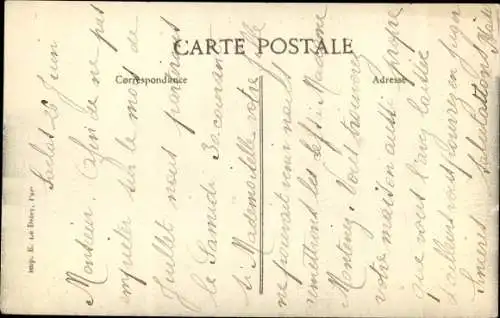 CARTE POSTALE
Correspondance
Adresse
Imp. E. Le Deley, Paris
26 Juin
Monsieur. Afin de ne pas
empiéter sur le mois de
Juillet nous partirons
le Samedi 30 courant
si Mademoiselle votre fille
ne pouvait venir nous
remettrons les clefs à Madame
Vous trouverez
votre maison aussi propre
que vous l'avez laissée
d'ailleurs vous pourrez en juger
Sincères Salutations